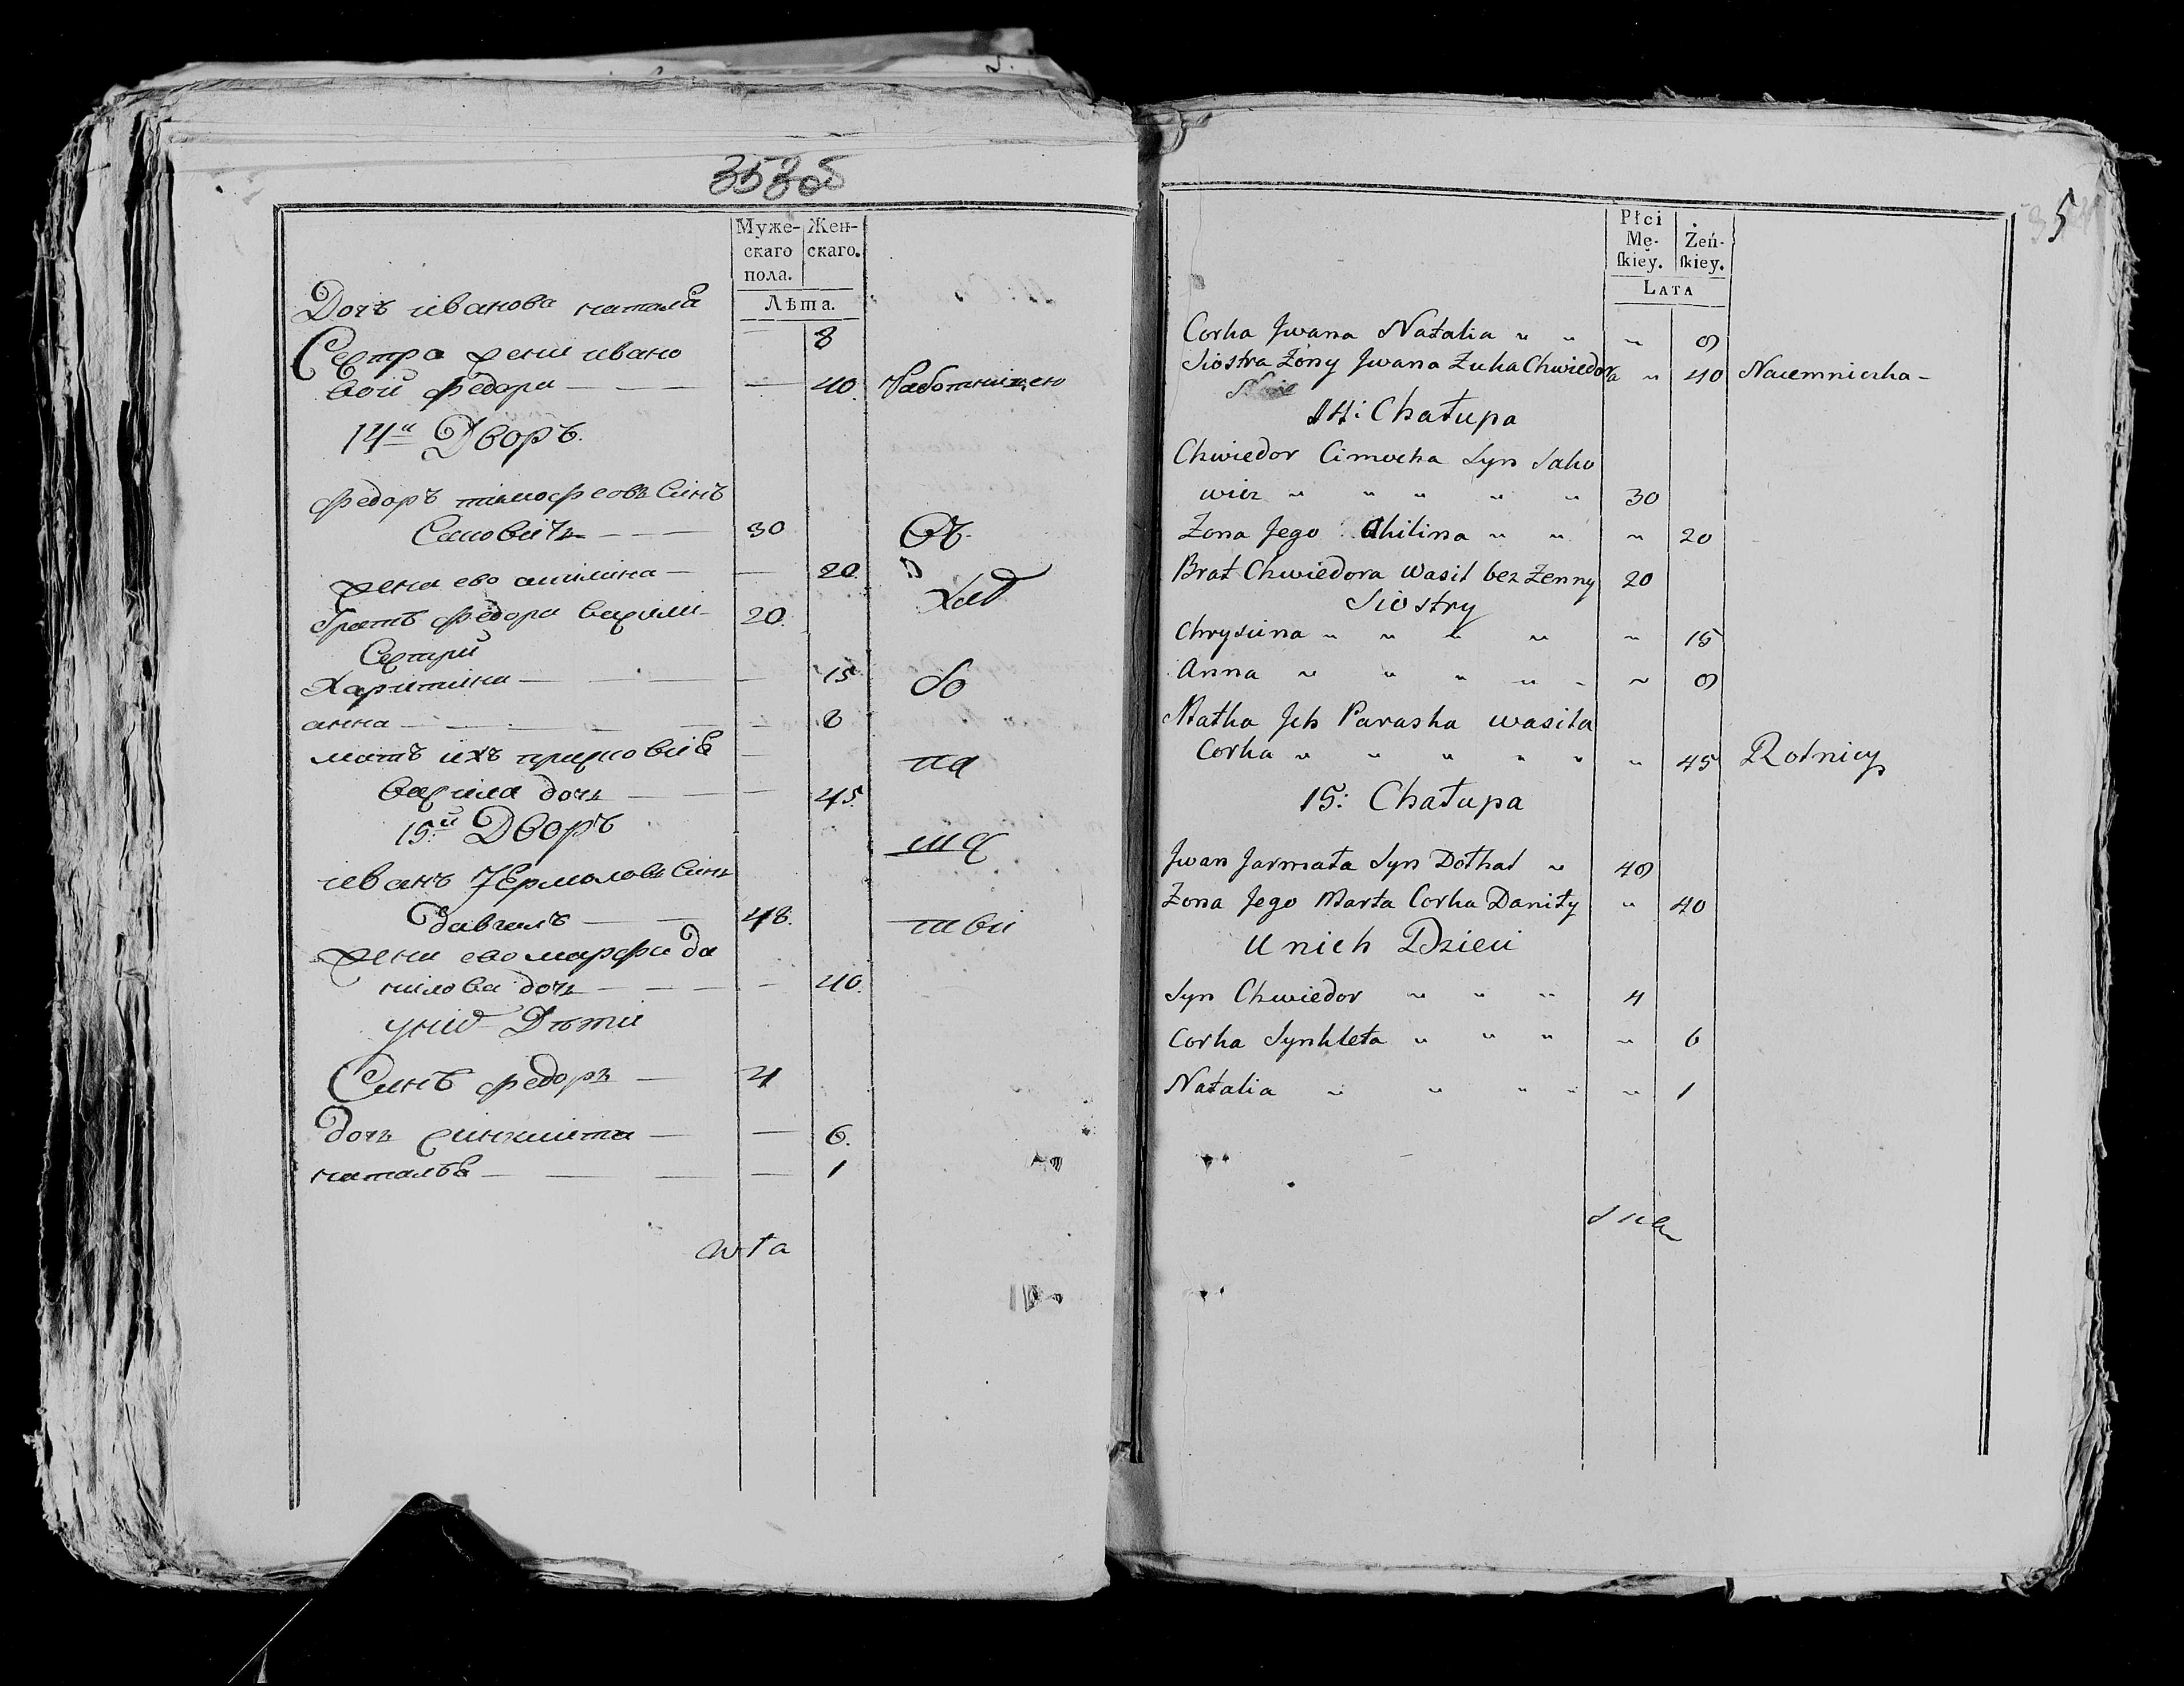 Муже-
скаго
пола.
Жен-
скаго.
Лѣта.
Дочъ иванова натала 8
Сестра жени ивано
вой федора — — — 40. Работницею
14й Дворъ.
федоръ тимофеовъ Синъ
— — — 30
жена ево акилина — — 20.
братъ федора васили — 20.
Сестри
Харитина — — — 15
анна — — — 8
матъ ихъ
васила дочь — — 45.
15:й Дворъ
иванъ Ермоловъ Синъ
Давгалъ — — 48.
жена ево марфа да
нилова дочь — — — 40.
Дѣти
Синъ федоръ — 4
Дочь — — 6.
наталъа — — — 1
wła
5
Płci
Mę-
ſkiey.
Żeń-
ſkiey.
LATA
Corka Jwana Natalia " " " 8
Siostra Zony Jwana Zuka Chwiedora " 40 Naiemniczka -
14: Chałupa
Chwiedor Cimocha Syn Sako
wicz " " " " " 30
Zona Jego Akilina " " " 20
Brat Chwiedora Wasil bez Zenny 20
Siostry
Chrysiina " " " " " 15
Anna " " " " - " 8
Matka Jch Paraska Wasila
Corka " " " " " " 45 Rolnicy
15: Chałupa
Jwan Jarmała Syn Dołhal " 48
Zona Jego Marta Corka Daniły " 40
U nich Dzieci
Syn Chwiedor " " " 4
Corka Synkleta " " " " 6
Natalia " " " " " 1